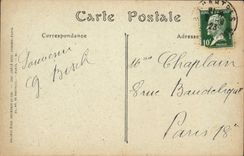 Carte Postale
Correspondance
Adresse
Souvenir
G Bosch
10
Mme Chaplain
8 rue Baudelique
Paris 18e